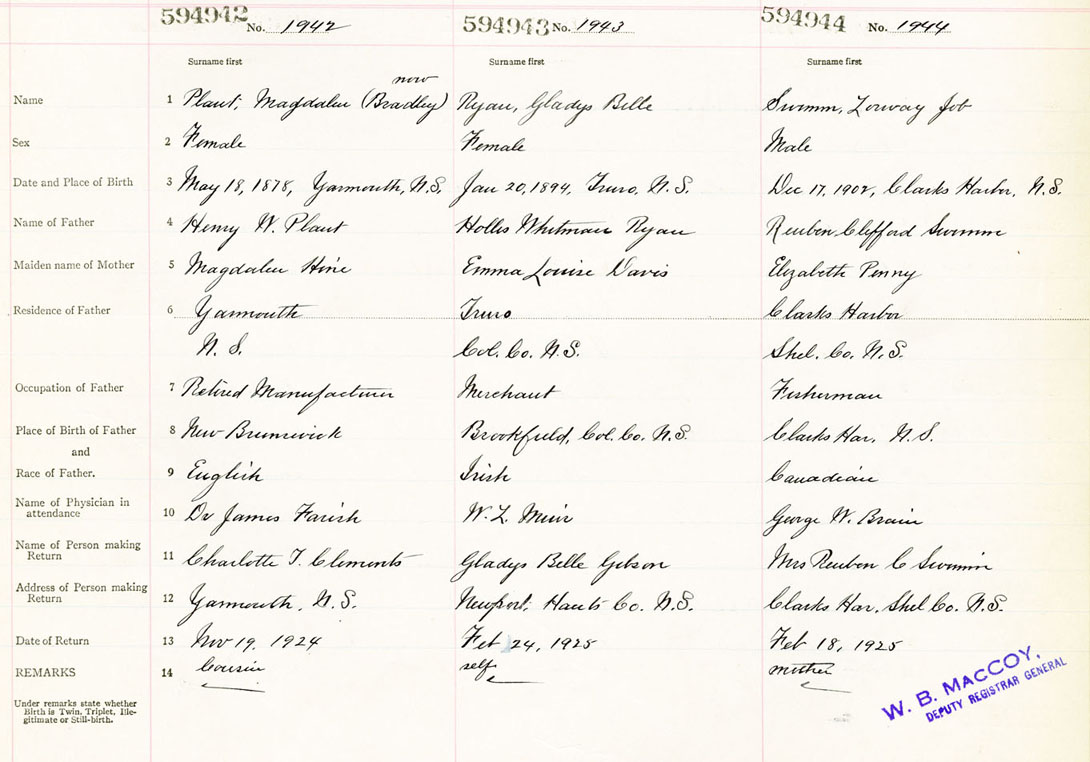 594942 No. 1942 594943 No. 1943 594944 No. 1944
Surname first Surname first Surname first
now
Name 1 Plant, Magdalen (Bradley) Ryan, Gladys Belle Swimm, Loway Job
Sex 2 Female Female Male
Date and Place of Birth 3 May 18, 1878, Yarmouth, N.S. Jan 20, 1894, Truro, N.S. Dec 17, 1902, Clarks Harbor, N.S.
Name of Father 4 Henry W. Plant Hollis Whitman Ryan Reuben Clifford Swimm
Maiden name of Mother 5 Magdalen Hine Emma Louise Davis Elizabeth Penny
Residence of Father 6 Yarmouth Truro Clarks Harbor
N. S. Col. Co. N.S. Shel. Co. N.S.
Occupation of Father 7 Retired Manufacturer Merchant Fisherman
Place of Birth of Father 8 New Brunswick Brookfield, Col. Co. N.S. Clarks Har. N.S.
and
Race of Father. 9 English Irish Canadian
Name of Physician in
attendance 10 Dr James Farish W. L. Muir George W. Brain
Name of Person making
Return 11 Charlotte T. Clements Gladys Belle Gibson Mrs Reuben C Swimm
Address of Person making
Return 12 Yarmouth, N.S. Newport, Hants Co. N.S. Clarks Har. Shel Co. N.S.
Date of Return 13 Nov 19, 1924 Feb 24, 1925 Feb 18, 1925
REMARKS 14 Cousin self mother
W. B. MACCOY,
DEPUTY REGISTRAR GENERAL
Under remarks state whether
Birth is Twin, Triplet, Ille-
gitimate or Still-birth.